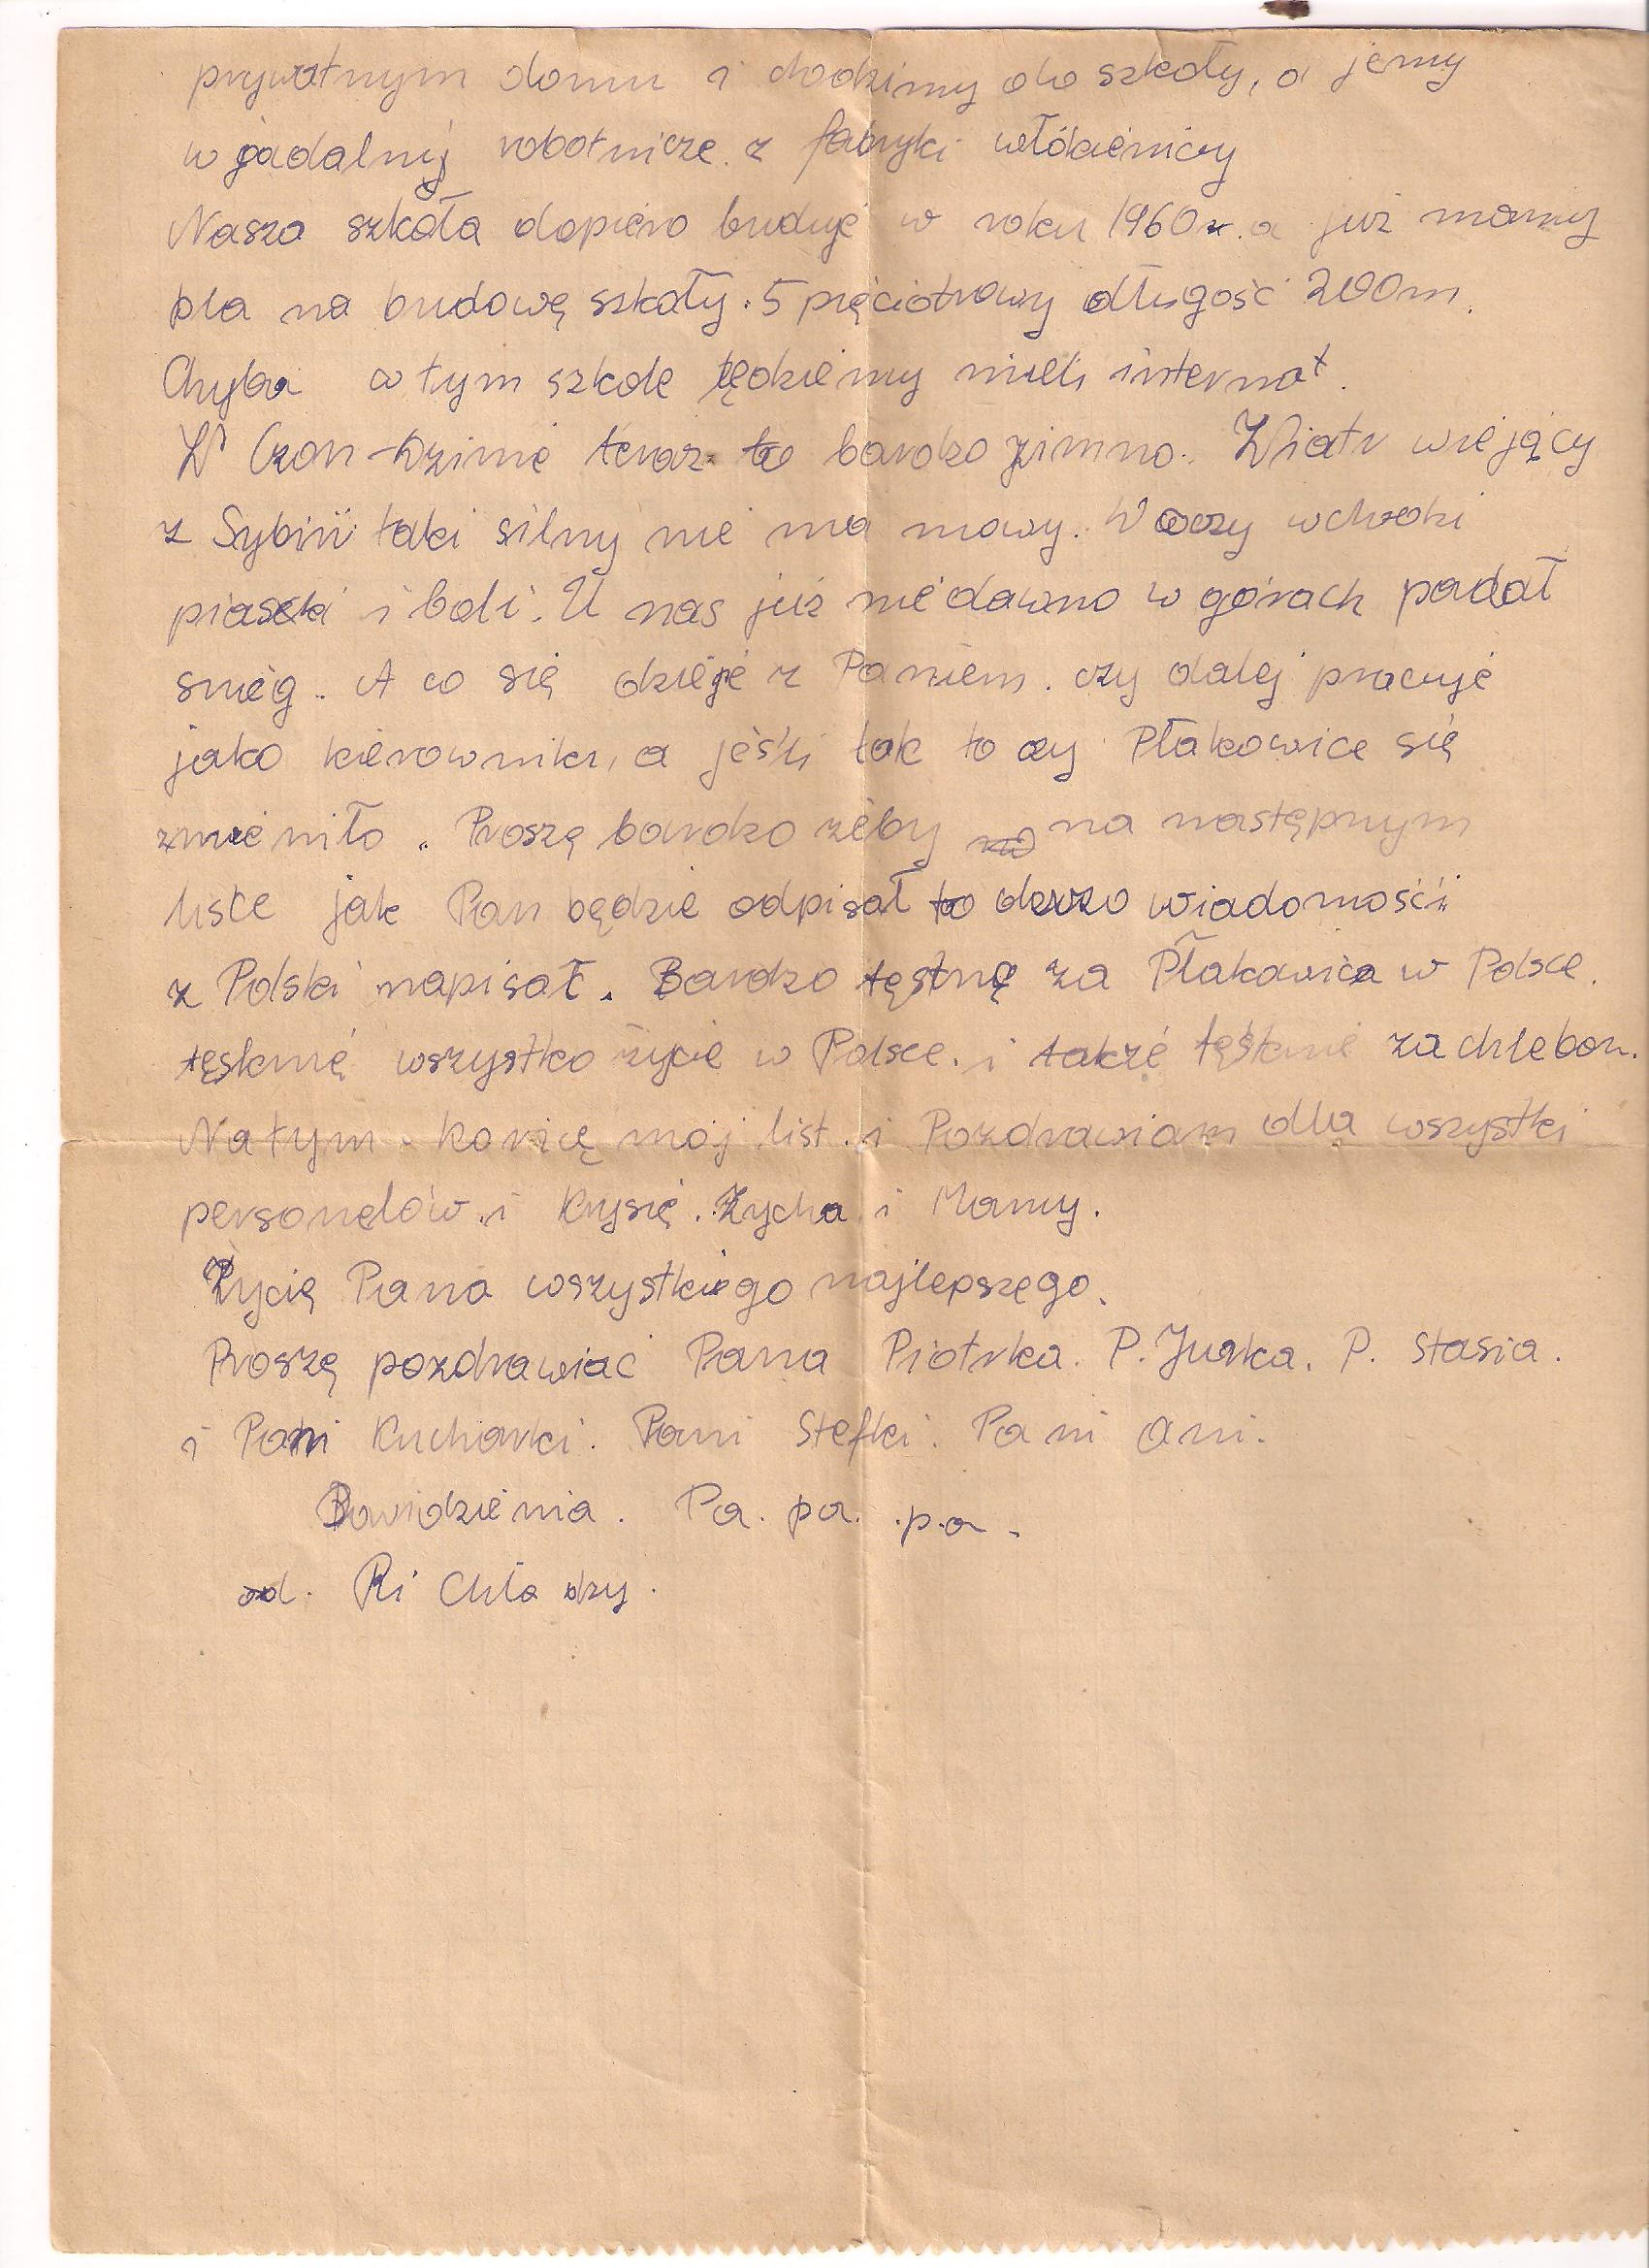 prywatnym domu i chodzimy do szkoły, a jemy
w jadalnij robotnicze z fabryki włókienicy
Nasza szkoła dopiero buduje w roku 1960r. a już mamy
pla na budowę szkoły. 5 pięciotrowy długość 200m.
Chyba w tym szkole będziemy mieli internat.
W Czon-Dzinie teraz to bardzo zimno. Wiatr wiejący
z Sybiri taki silny nie ma mowy. W oczy wchodzi
piaseki i boli. U nas już nie dawno w górach padał
snieg. A co się dzieje z Paniem. czy dalej pracuje
jako kierownik, a jeśli tak to czy Płakowice się
zmieniło. Proszę bardzo żeby na następnym
liście jak Pan będzie odpisał to dużo wiadomości
z Polski napisał. Bardzo tęsknę za Płakowica w Polsce.
tęsknię wszystko życie w Polsce. i także tęsknie za chlebom.
Na tym kończę mój list. i Pozdrawiam dla wszystki
personelów. i Krysię. Zycha i Mamy.
Życię Pana wszystkiego najlepszego.
Proszę pozdrawiać Pana Piotrka. P. Jurka. P. Stasia.
i Pani Kucharki. Pani Stefki. Pani Ani.
Dowidzienia. Pa. pa. pa.
od. Ri Chła